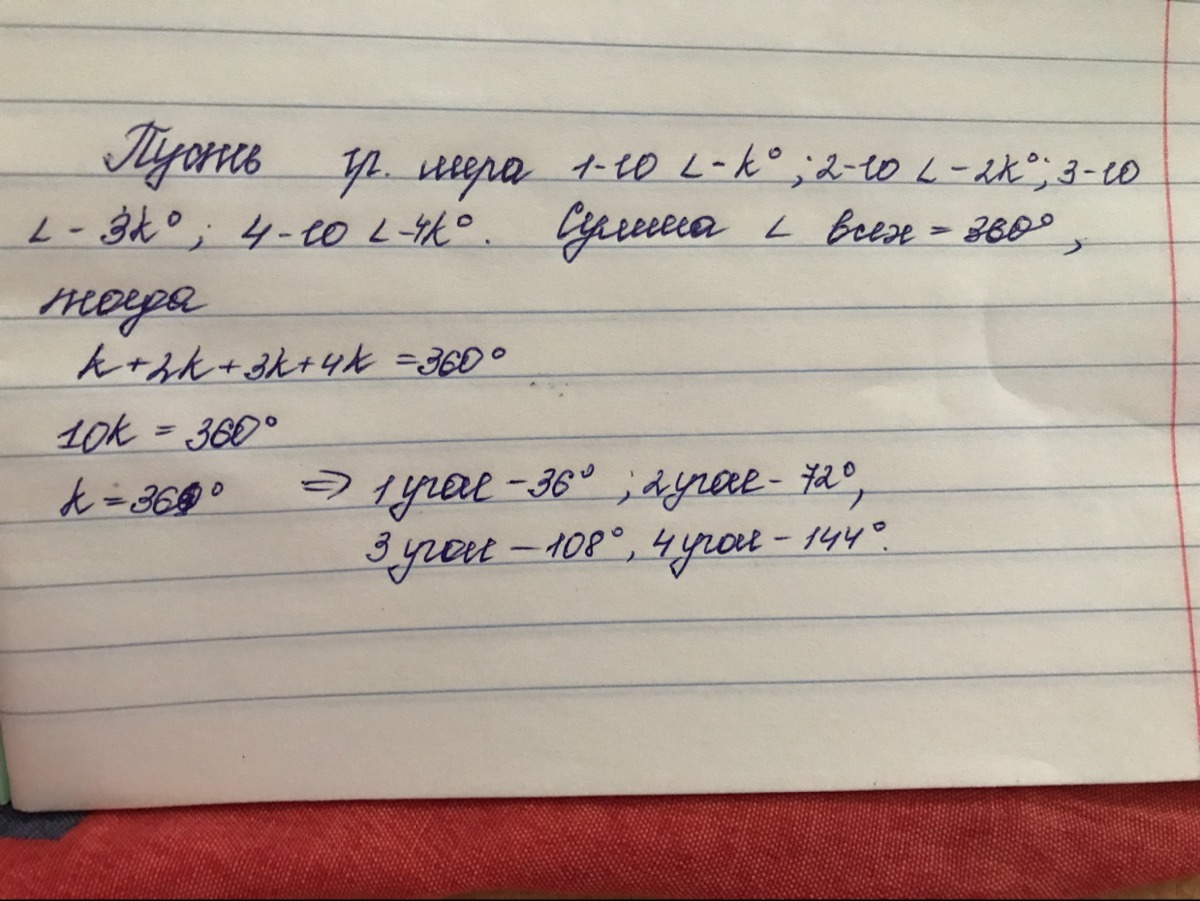 Пусть гр. мера 1-го ∠ - k°; 2-го ∠ - 2k°; 3-го
∠ - 3k°; 4-го ∠ - 4k°. Сумма ∠ всех = 360°,
тогда
k + 2k + 3k + 4k = 360°
10k = 360°
k = 36° ⇒ 1 угол - 36°; 2 угол - 72°,
3 угол - 108°, 4 угол - 144°.